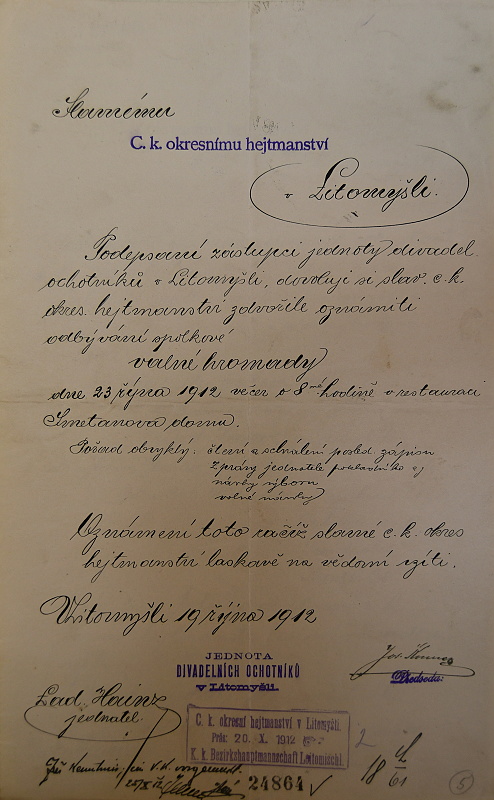 Slavnému
C. k. okresnímu hejtmanství
v Litomyšli.
Podepsaní zástupci jednoty divadel.
ochotníků v Litomyšli, dovolují si slav. c. k.
okres. hejtmanství zdvořile oznámiti
odbývání spolkové
valné hromady
dne 23 října 1912 večer o 8mé hodině v restauraci
Smetanova domu.
Pořad obvyklý: čtení a schválení posled. zápisu
Zprávy jednatele
návrhy výboru
volné návrhy
Oznámení toto račiž slavné c. k. okres
hejtmanství laskavě na vědomí vzíti.
V Litomyšli 19 října 1912
JEDNOTA
DIVADELNÍCH OCHOTNÍKŮ
v Litomyšli.
Předseda:
Lad. Hanz
jednatel.
C. k. okresní hejtmanství v Litomyšli.
Präs: 20. X. 1912
K. k. Bezirkshauptmannschaft Leitomischl.
2
24864
18 4/61
5